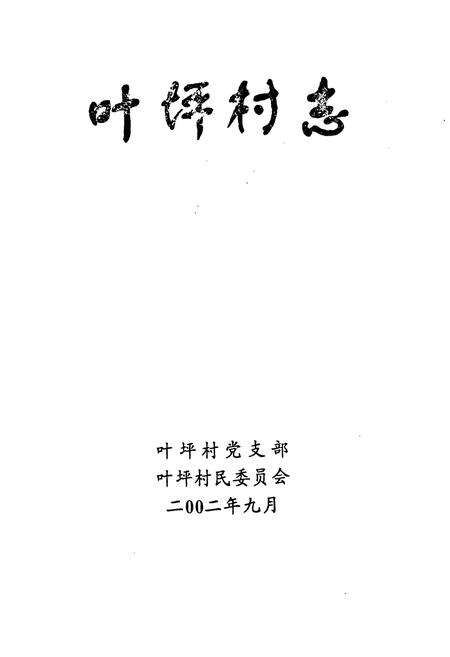 叶坪村志
叶坪村党支部
叶坪村民委员会
二00二年九月